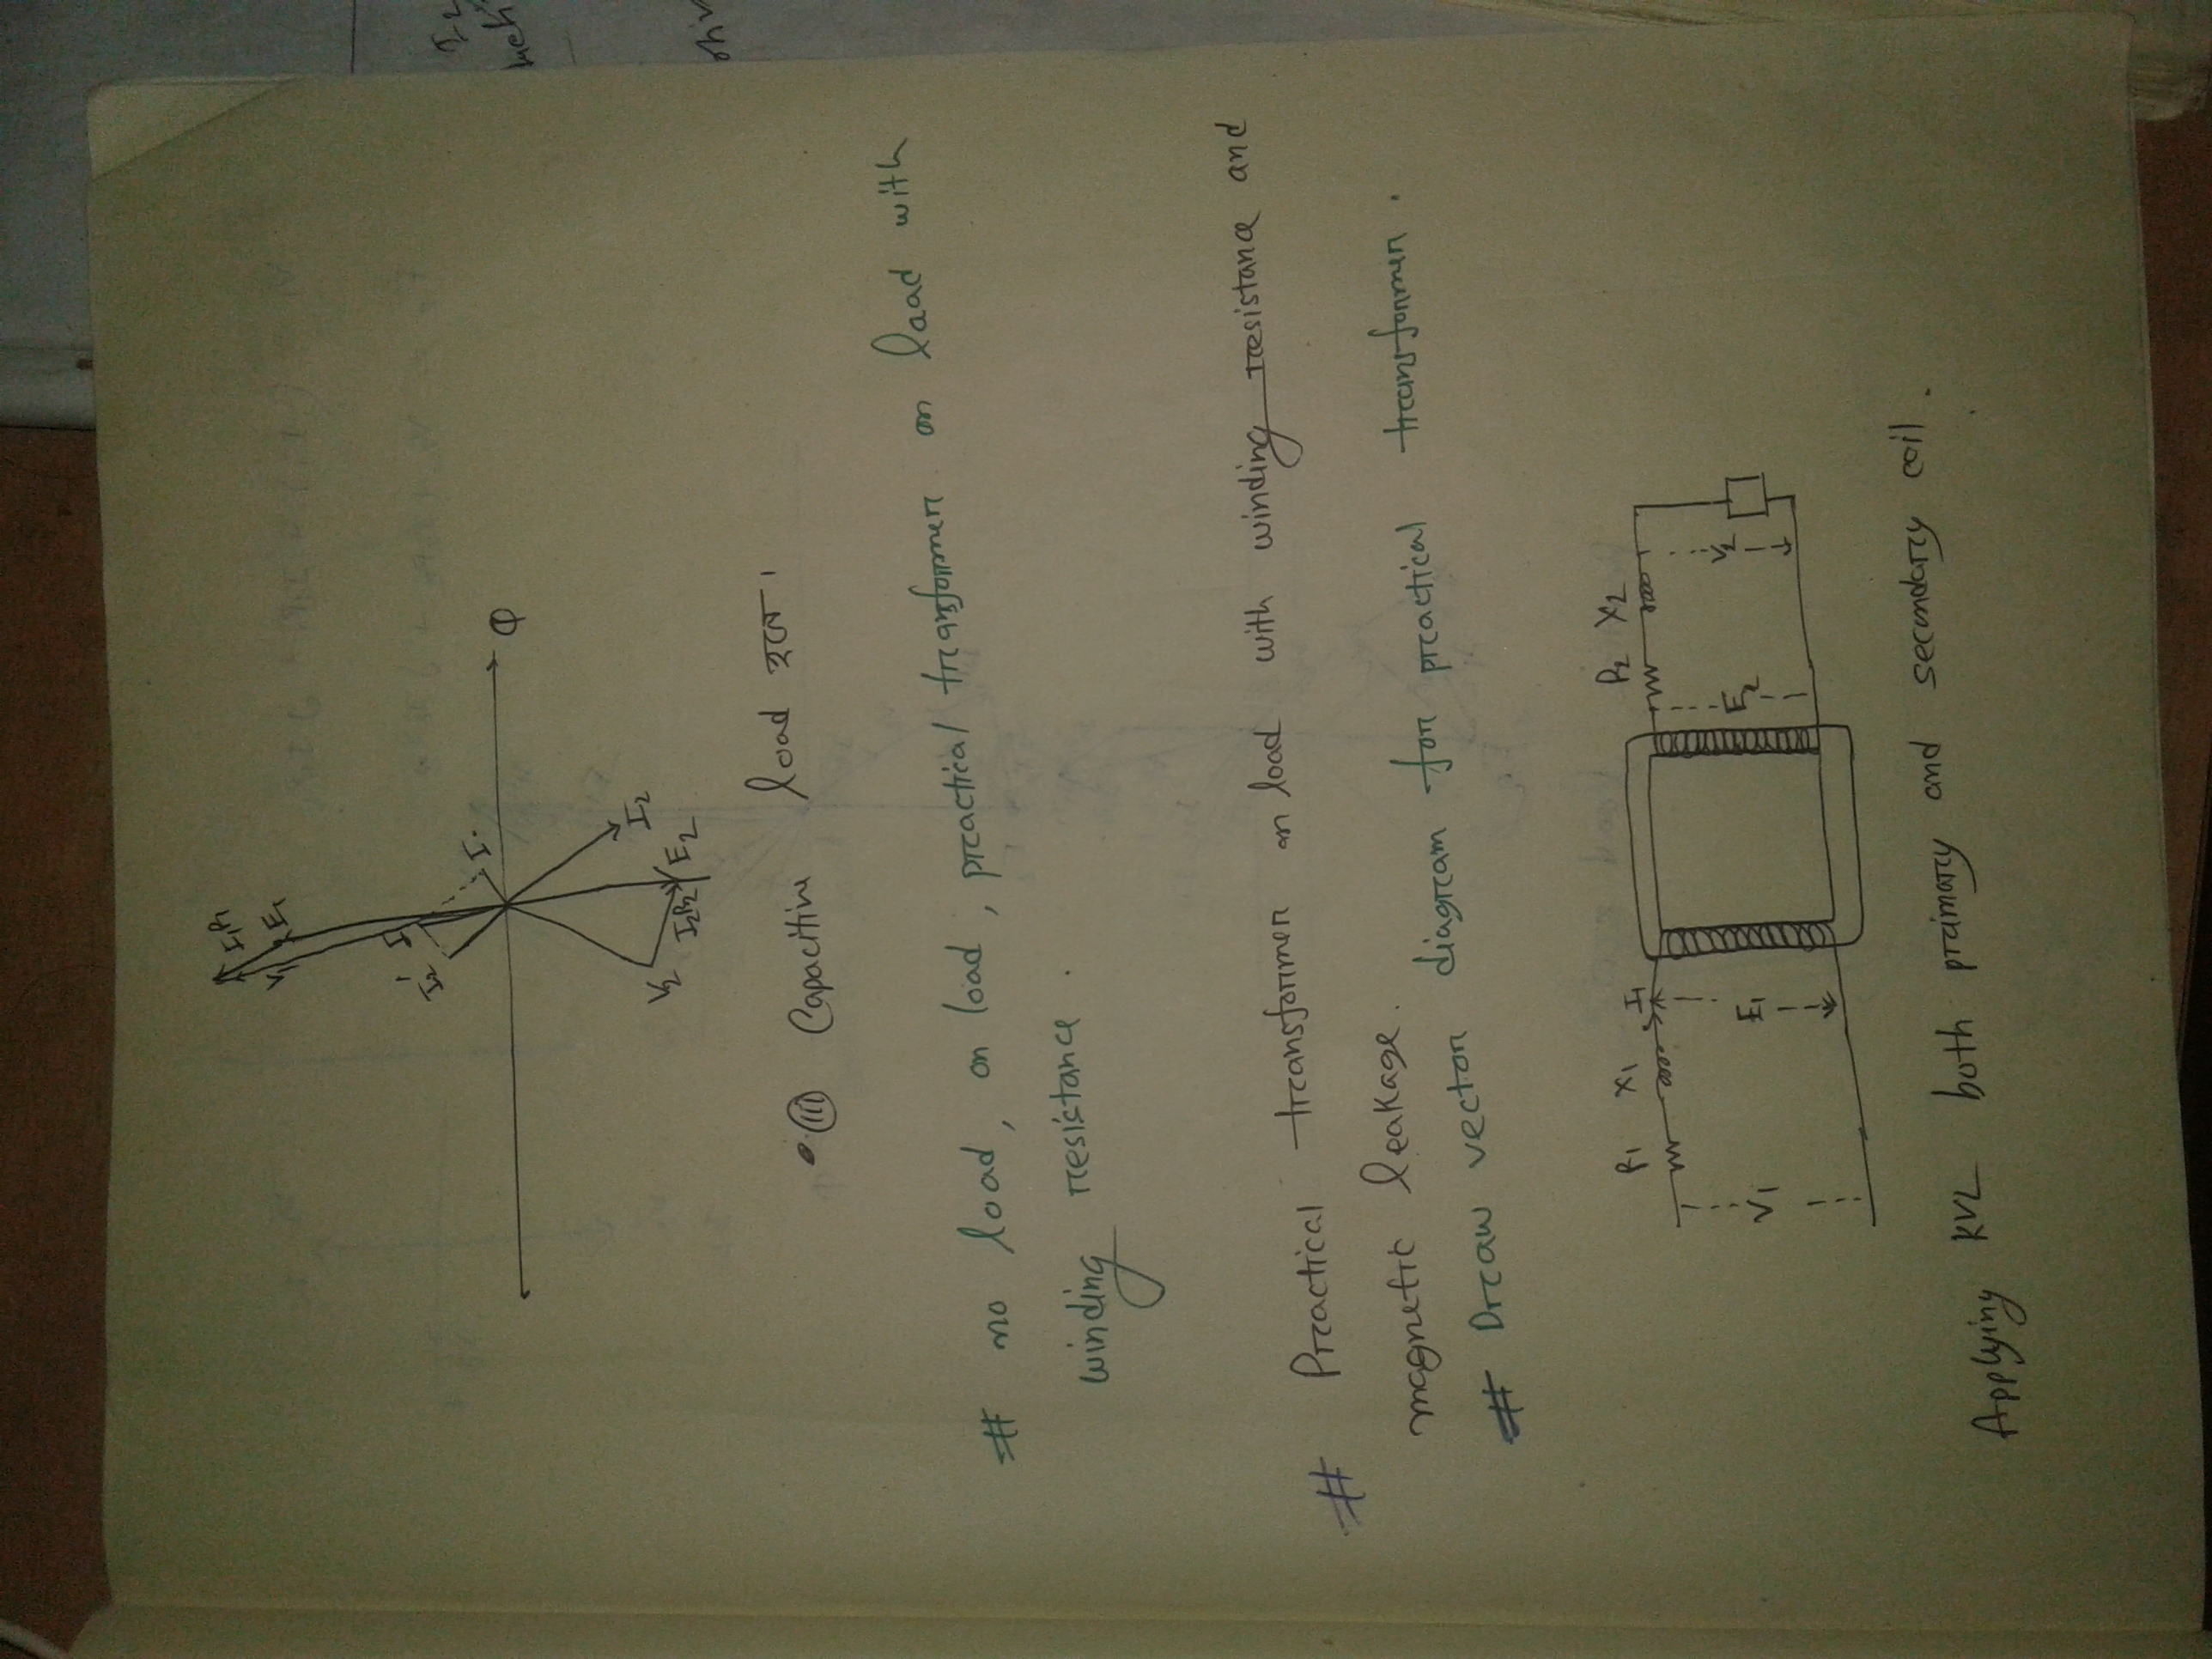 I₁R₁
V₁ E₁
I₁
I₂'
I₀
Φ
I₂
V₂
I₂R₂ E₂
(iii) Capacitive load হলে।
# no load, on load, practical transformer on load with
winding resistance.
# Practical transformer on load with winding resistance and
magnetic leakage.
# Draw vector diagram for practical transformer.
R₁ X₁ I₁ R₂ X₂
V₁ E₁ E₂ V₂
Applying KVL both primary and secondary coil.
I₂